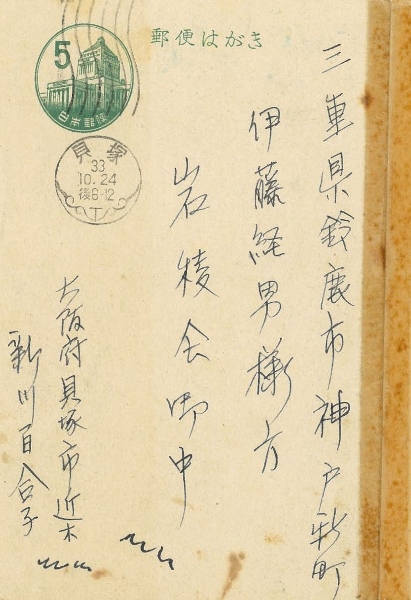 郵便はがき
5
日本郵便
貝塚
33
10.24
後6-12
三重県鈴鹿市神戸新町
伊藤経男様方
岩稜会御中
大阪府貝塚市近木
新川百合子